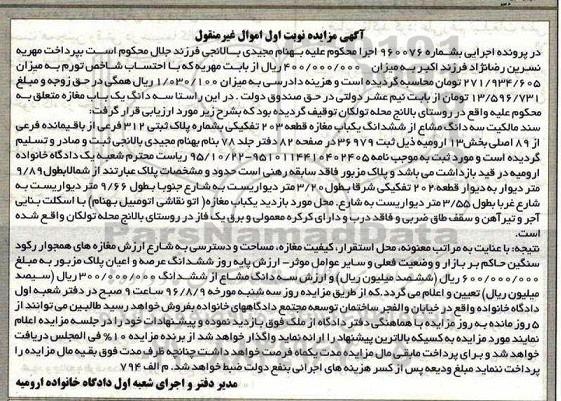 آگهی مزایده نوبت اول اموال غیر منقول
در پرونده اجرایی بشماره ۹۶۰۰۷۶ اجرا محکوم علیه بهنام مجیدی بالانجی فرزند جلال محکوم است بپرداخت مهریه
نسرین رضانژاد فرزند اکبر به میزان ۴۰۰/۰۰۰/۰۰۰ ریال از بابت مهریه که با احتساب شاخص تورم به میزان
۲۷۱/۹۳۴/۶۰۵ تومان محاسبه گردیده است و هزینه دادرسی به میزان ۱/۰۳۰/۱۰۰ ریال همگی در حق زوجه و مبلغ
۱۳/۵۹۶/۷۳۱ تومان از بابت نیم عشر دولتی در حق صندوق دولت . در این راستا سه دانگ یک باب مغازه متعلق به
محکوم علیه واقع در روستای بالانج محله تولکان توقیف گردیده بود که بشرح زیر مورد ارزیابی قرار گرفت:
سند مالکیت سه دانگ مشاع از ششدانگ یکباب مغازه قطعه ۲۰۳ تفکیکی بشماره پلاک ثبتی ۳۱۲ فرعی از باقیمانده فرعی
از ۸۹ اصلی بخش ۱۳ ارومیه ذیل ثبت ۳۶۹۷۹ در صفحه ۸۲ دفتر جلد ۷۸ بنام بهنام مجیدی بالانجی ثبت و صادر و تسلیم
گردیده است و مورد ثبت به موجب نامه ۹۵۱۰۱۱۴۴۱۰۴۰۲۴۰۵-۹۵/۱۰/۲۲ ریاست محترم شعبه یک دادگاه خانواده
ارومیه در قید بازداشت می باشد و پلاک مزبور فاقد سابقه رهنی است حدود و مشخصات پلاک عبارتند از شمالابطول ۹/۸۹
متر دیوار به دیوار قطعه ۲۰۲ تفکیکی شرقا بطول ۳/۲۰ متر دیواریست به شارع جنوبا بطول ۹/۶۶ متر دیواریست به
شارع غربا بطول ۳/۵۵ متر دیواریست به شارع. محل مورد بازدید یکباب مغازه (اتو نقاشی اتومبیل بهنام) با اسکلت بنایی
آجر و تیرآهن و سقف طاق ضربی و فاقد درب و دارای کرکره معمولی و برق یک فاز در روستای بالانج محله تولکان واقع شده
است.
نتیجه: با عنایت به مراتب معنونه، محل استقرار، کیفیت مغازه، مساحت و دسترسی به شارع ارزش مغازه های همجوار رکود
سنگین حاکم بر بازار و وضعیت فعلی و سایر عوامل موثر- ارزش پایه روز ششدانگ عرصه و اعیان پلاک مزبور به مبلغ
۶۰۰/۰۰۰/۰۰۰ ریال (ششصد میلیون ریال) و ارزش سه دانگ مشاع از ششدانگ ۳۰۰/۰۰۰/۰۰۰ ریال (سیصد
میلیون ریال) تعیین و اعلام می گردد.که از طریق مزایده روز سه شنبه مورخه ۹۶/۸/۹ ساعت ۹ صبح در دفتر شعبه اول
دادگاه خانواده واقع در خیابان والفجر ساختمان توسعه مجتمع دادگاههای خانواده بفروش خواهد رسید طالبین می توانند از
۵ روز مانده به روز مزایده با هماهنگی دفتر دادگاه از ملک فوق بازدید نموده و پیشنهادات خود را در جلسه مزایده اعلام
نمایند مورد مزایده به کسیکه بالاترین پیشنهاد را ارائه نماید واگذار خواهد شد از برنده مزایده ۱۰٪ فی المجلس دریافت
خواهد شد و برای پرداخت مابقی مال مزایده مدت یکماه فرصت خواهد داشت چنانچه ظرف مدت فوق بقیه مال مزایده را
پرداخت ننماید مبلغ ودیعه پس از کسر هزینه های اجرائی بنفع دولت ضبط خواهد شد. م الف ۷۹۴
مدیر دفتر و اجرای شعبه اول دادگاه خانواده ارومیه